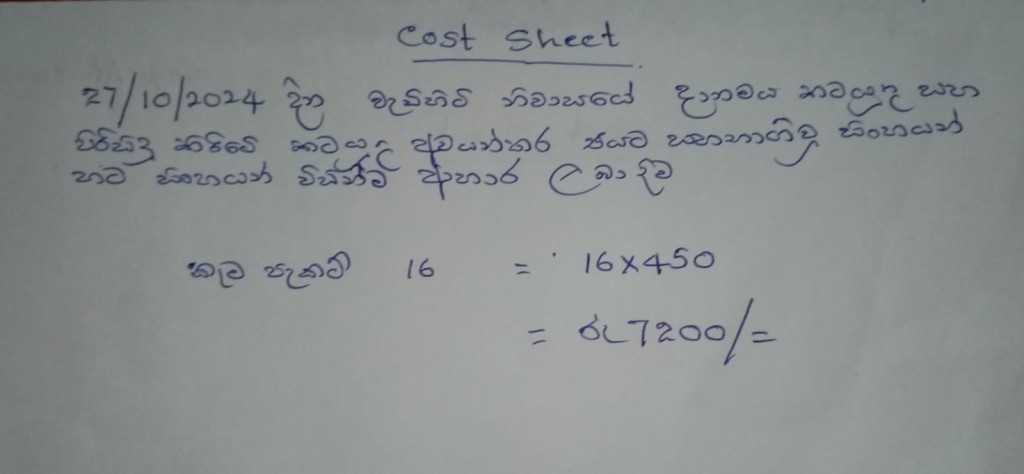 Cost Sheet
27/10/2024 දින වැඩිහිටි නිවාසයේ දානමය කටයුතු සහ
පිරිසිදු කිරීමේ කටයුතු අවයන්තර පයට සහභාගිවූ සිංහයන්
හට සිංහයන් විසින්ම ආහාර ලබාදීම
කෑම පැකට් 16 = 16x450
= රු 7200/=